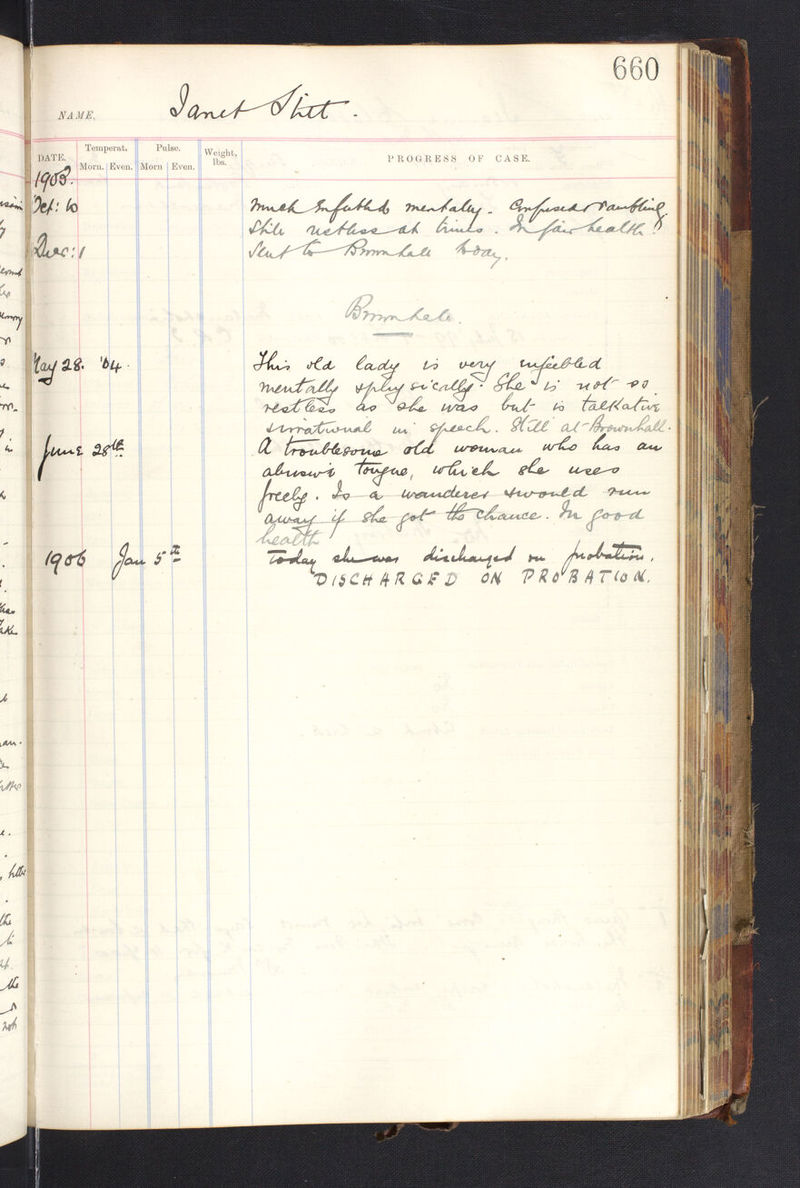 660
NAME. Janet Stitt.
DATE. Temperat. Pulse. Weight, lbs. PROGRESS OF CASE.
Morn. Even. Morn Even.
1903.
Oct: 10 Much enfeebled mentally. Confused & rambling
Still restless at times. In fair health.
Dec: 1 Sent to Brownhall today.
Brownhall.
May 28. '04. This old lady is very enfeebled
mentally & physically. She is not so
restless as she was but is talkative
& irrational in speech. Still at Brownhall.
June 28th A troublesome old woman who has an
abusive tongue, which she uses
freely. Is a wanderer & would run
away if she got the chance. In good
health
1906 Jan 5th Today she was discharged on probation.
DISCHARGED ON PROBATION.